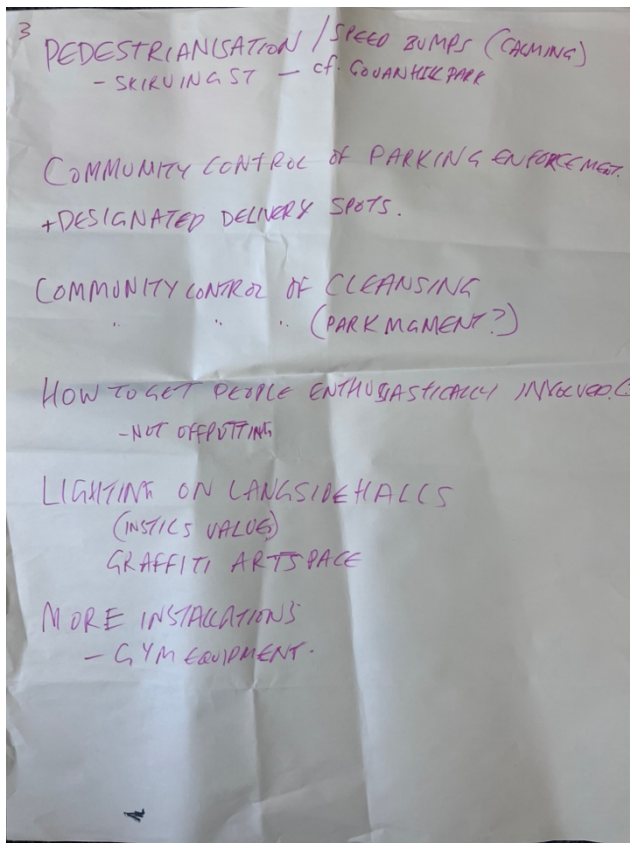 3
PEDESTRIANISATION / SPEED BUMPS (CALMING)
- SKIRVING ST - cf. GOVANHILL PARK
COMMUNITY CONTROL OF PARKING ENFORCEMENT.
+ DESIGNATED DELIVERY SPOTS.
COMMUNITY CONTROL OF CLEANSING
" " " (PARK MGMENT?)
HOW TO GET PEOPLE ENTHUSIASTICALLY INVOLVED
- NOT OFFPUTTING
LIGHTING ON LANGSIDE HALLS
(INSTILS VALUE)
GRAFFITI ARTSPACE
MORE INSTALLATIONS
- GYM EQUIPMENT.